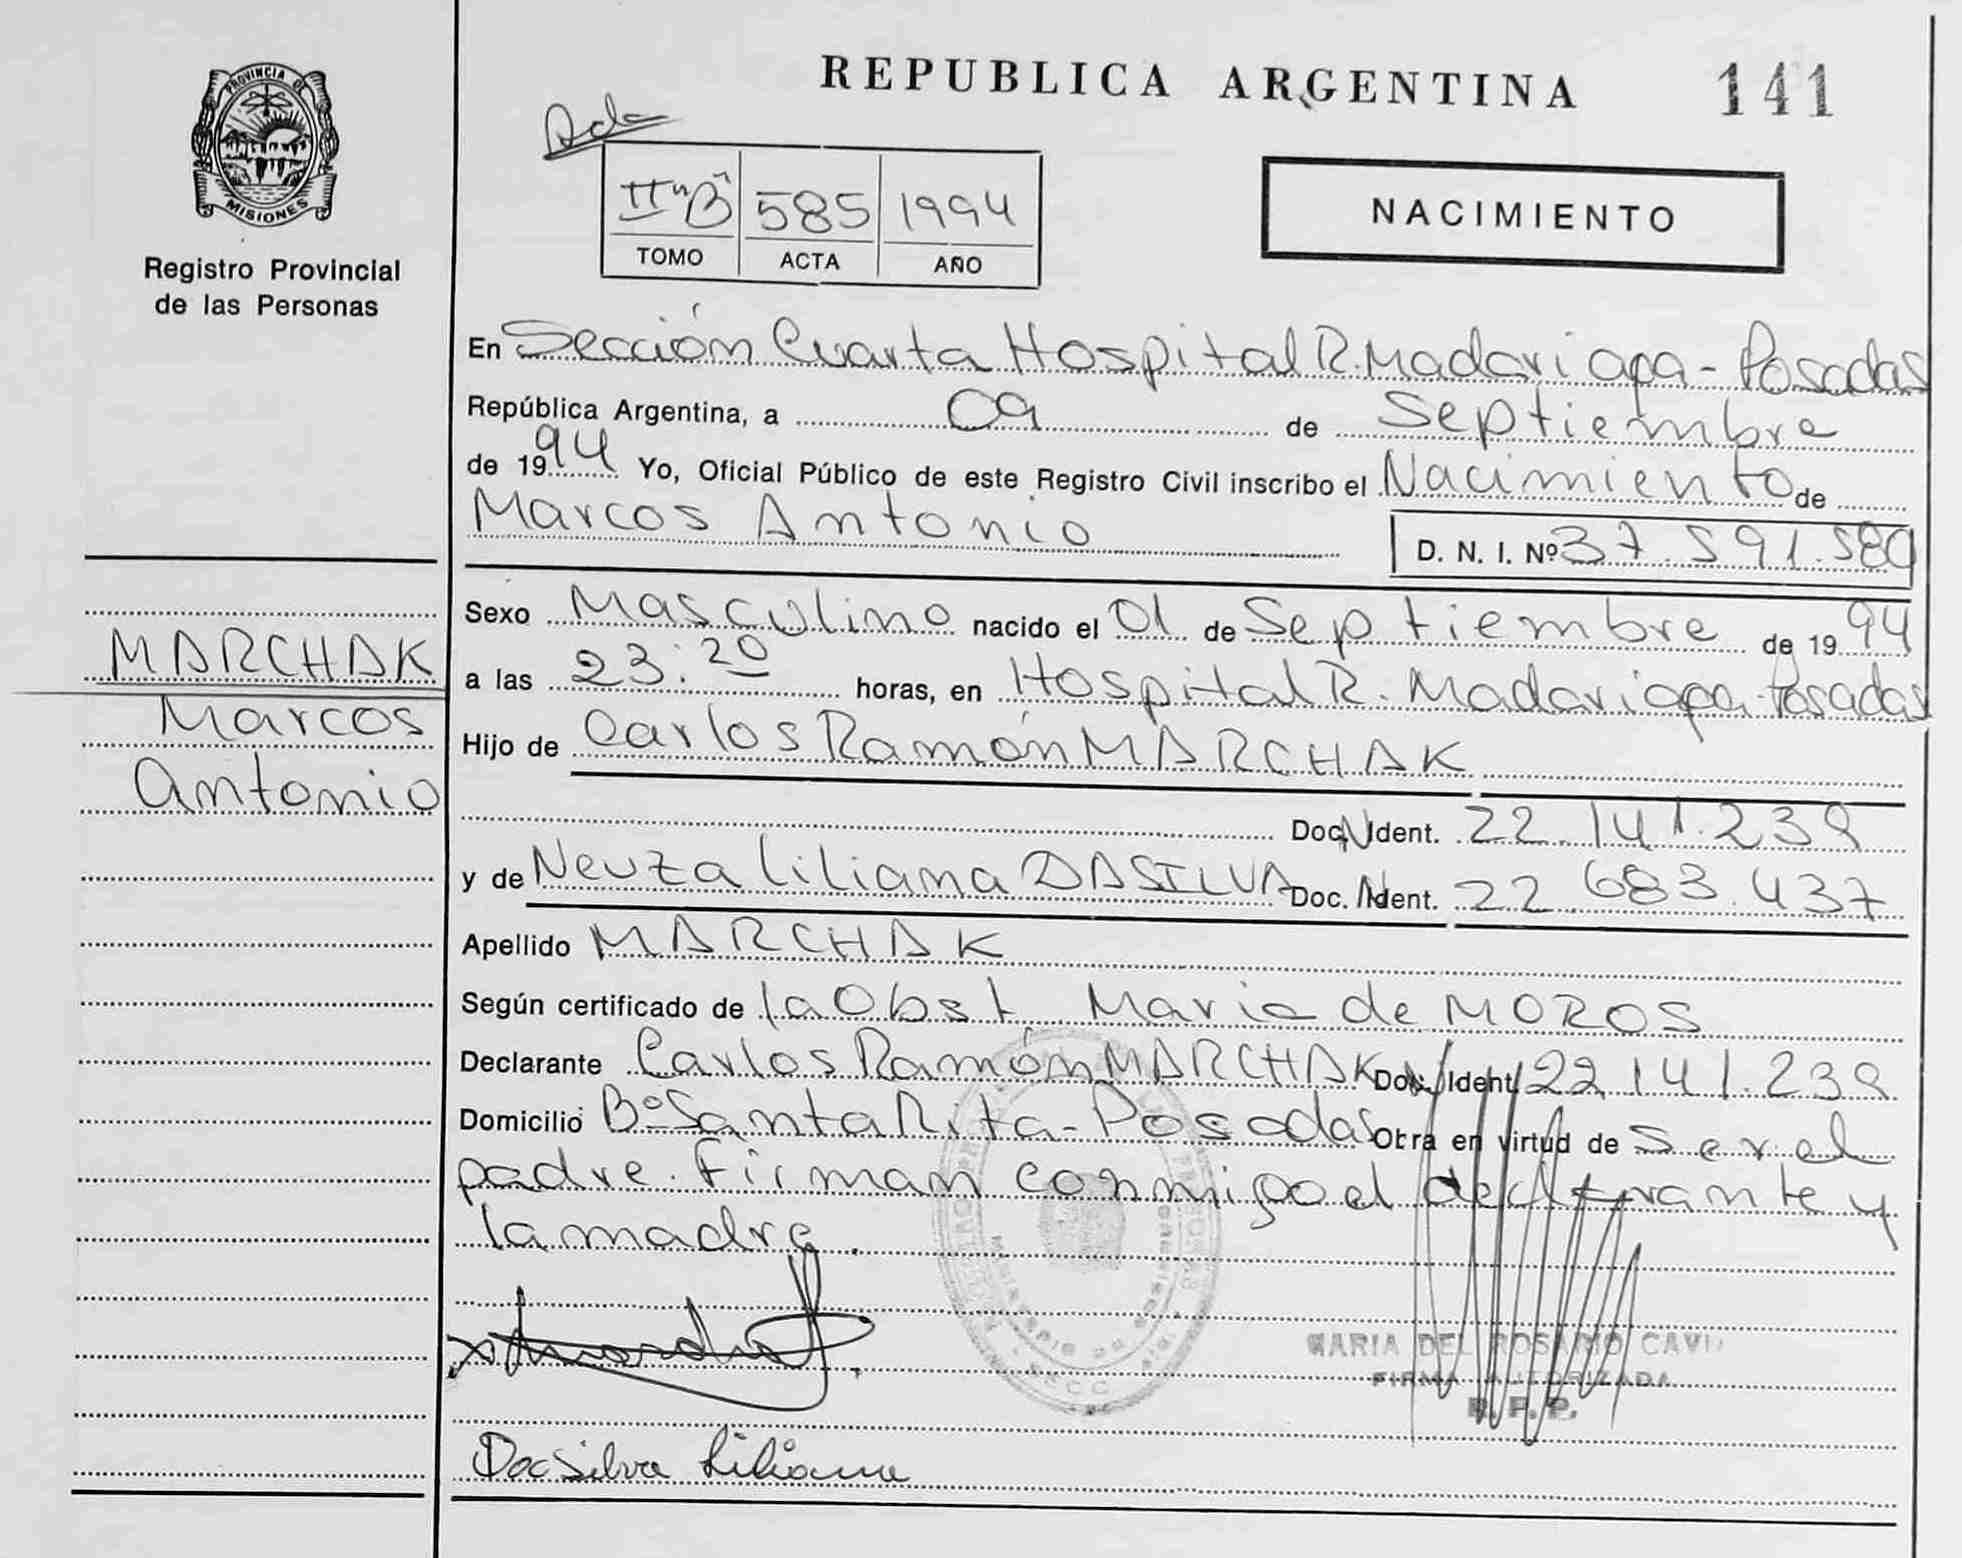 PROVINCIA DE
MISIONES
Registro Provincial
de las Personas
MARCHAK
Marcos
Antonio
REPUBLICA ARGENTINA
141
II "B" 585 1994
TOMO ACTA AÑO
NACIMIENTO
En Sección Cuarta Hospital R. Madariaga - Posadas
República Argentina, a 09 de Septiembre
de 1994 Yo, Oficial Público de este Registro Civil inscribo el Nacimiento de
Marcos Antonio D. N. I. Nº 37.591.580
Sexo Masculino nacido el 01 de Septiembre de 1994
a las 23:20 horas, en Hospital R. Madariaga - Posadas
Hijo de Carlos Ramón MARCHAK
Doc. N Ident. 22.141.239
y de Neuza Liliana DASILVA Doc. N Ident. 22.683.437
Apellido MARCHAK
Según certificado de la Obst María de MOROS
Declarante Carlos Ramón MARCHAK Doc. Ident. 22.141.239
Domicilio Bº Santa Rita - Posadas Obra en virtud de ser el
padre. Firman conmigo el declarante y
la madre.
MARIA DEL ROSARIO
FIRMA AUTORIZADA
R. P. P.
Da Silva Liliana